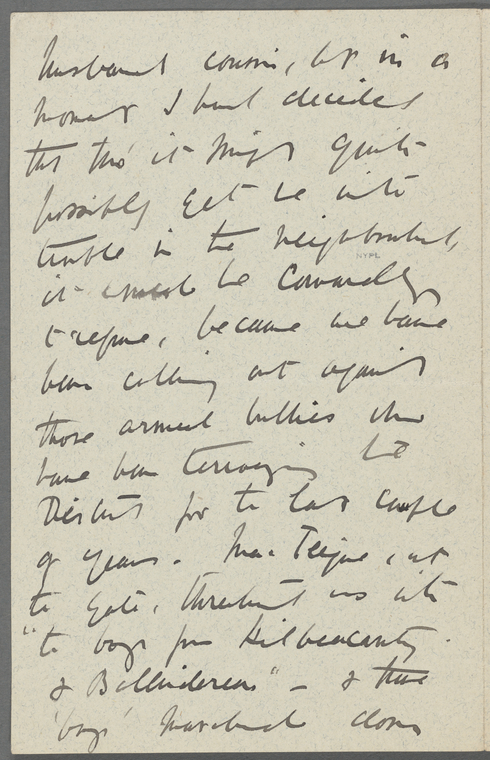 husband's cousin, but in a
moment I had decided
that tho' it might quite
possibly get us into
trouble in the neighbourhood,
it would be cowardly
NYPL
to refuse, because we have
been calling out against
those armed bullies who
have been terrorizing the
District for the last couple
of years. MacTeigue, at
the gate, threatened us with
"the boys from Kilbeacanty
& Ballinderreen" - & these
'boys' marched down